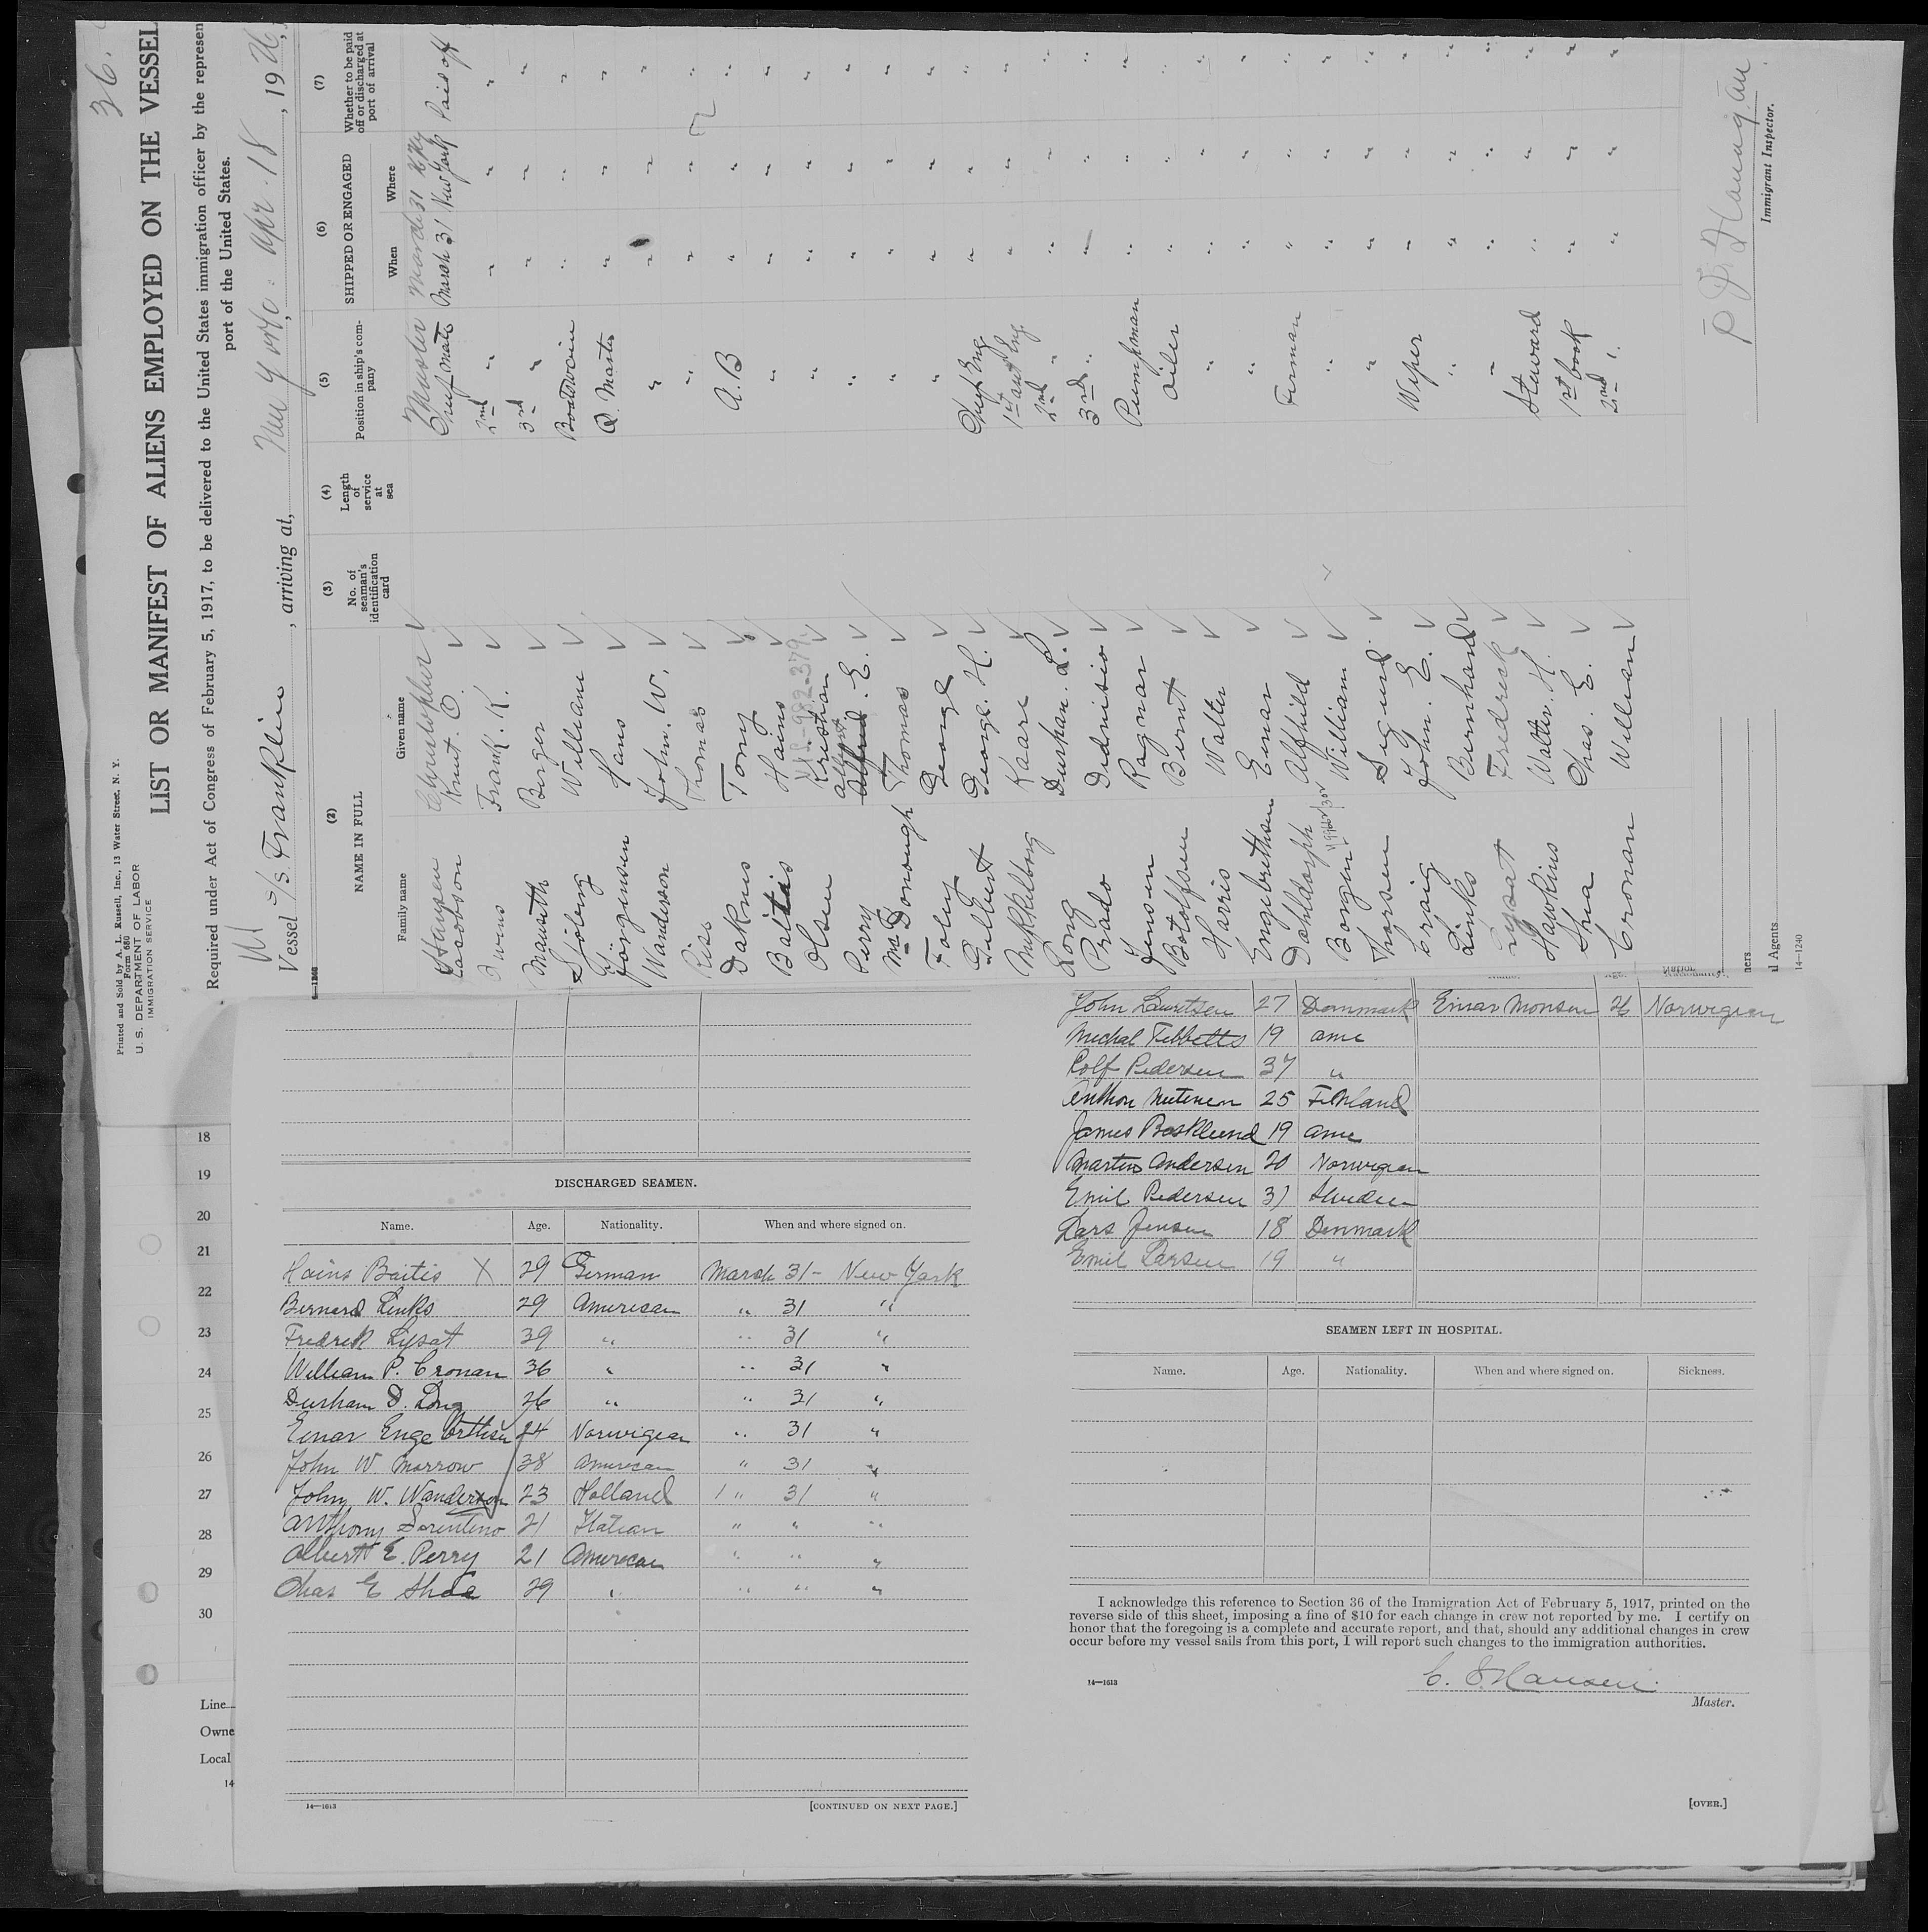 36.
Printed and Sold by A. L. Russell, Inc., 13 Water Street, N. Y.
Form 680
U. S. DEPARTMENT OF LABOR
IMMIGRATION SERVICE
LIST OR MANIFEST OF ALIENS EMPLOYED ON THE VESSEL
Required under Act of Congress of February 5, 1917, to be delivered to the United States immigration officer by the represen
port of the United States.
Vessel S/S Franklin, arriving at, New York: Apr. 18, 1926,
(2) (3) (4) (5) (6) (7)
NAME IN FULL No. of seaman's identification card Length of service at sea Position in ship's company SHIPPED OR ENGAGED Whether to be paid off or discharged at port of arrival
Family name Given name When Where
Hansen Christopher Master March 31
Knut. O. Chief Mate March 31 New York Paid off
Frank. K. 2nd " " " "
Mauseth Birger 3rd " " " "
William Boatswain " " "
Jörgensen Hans Q. Master " " "
Wanderson John. W. " " " "
Riss Thomas " " " "
Daknis Tony A.B " " "
Baitis Hains " " " "
Olsen Kristian " " " "
Perry Albert E. " " " "
McDonough Thomas " " " "
Foley George " " " "
Gilbert George. H. Chief Eng " " "
Mykkelborg Kaare 1st asst Eng " " "
Long Dursham. D. 2nd " " " "
Prado Dionisio 3rd " " " "
Jensen Ragnar Pumpman " " "
Botolfsen Bernt Oiler " " "
Harris Walter " " " "
Engebrethsen Einar " " " "
Dahldorph Alfhild Fireman " " "
William " " " "
Thorsen Sigurd " " " "
Craig John. E. Wiper " " "
Links Bernhard " " " "
Lysat Fredrick " " " "
Hawkins Walter. H. Steward " " "
Shea Chas. E. 1st cook " " "
Cronan William 2nd " " " "
Immigrant Inspector.
ners
l Agents
14—1240
18
19
20
21
22
23
24
25
26
27
28
29
30
Line
Owne
Local
14
DISCHARGED SEAMEN.
Name. Age. Nationality. When and where signed on.
Hains Baitis X 29 German March 31 - New York
Bernard Links 29 American " 31 "
Fredrek Lysat 39 " " 31 "
William P. Cronan 36 " " 31 "
Dursham D. Long 26 " " 31 "
Einar Engebrthsen 24 Norwigean " 31 "
John W. Morrow 38 American " 31 "
John W. Wanderson 23 Holland " 31 "
Anthony Sorentino 21 Italian " " "
Albert E. Perry 21 American " " "
Chas E Shea 29 " " " "
14—1613 [CONTINUED ON NEXT PAGE.]
John Lauritsen 27 Dannmark Einar Monsen 26 Norwigian
Michal Tibbetts 19 ame
Rolf Pedersen 37 "
Anthon Nutinen 25 Finland
James Basklund 19 ame
Martins Andersen 20 Norwigean
Emil Pedersen 31 Sweden
Lars Jensen 18 Denmark
Emil Larsen 19 "
SEAMEN LEFT IN HOSPITAL.
Name. Age. Nationality. When and where signed on. Sickness.
I acknowledge this reference to Section 36 of the Immigration Act of February 5, 1917, printed on the
reverse side of this sheet, imposing a fine of $10 for each change in crew not reported by me. I certify on
honor that the foregoing is a complete and accurate report, and that, should any additional changes in crew
occur before my vessel sails from this port, I will report such changes to the immigration authorities.
C. Hansen.
14—1613
Master.
[OVER.]